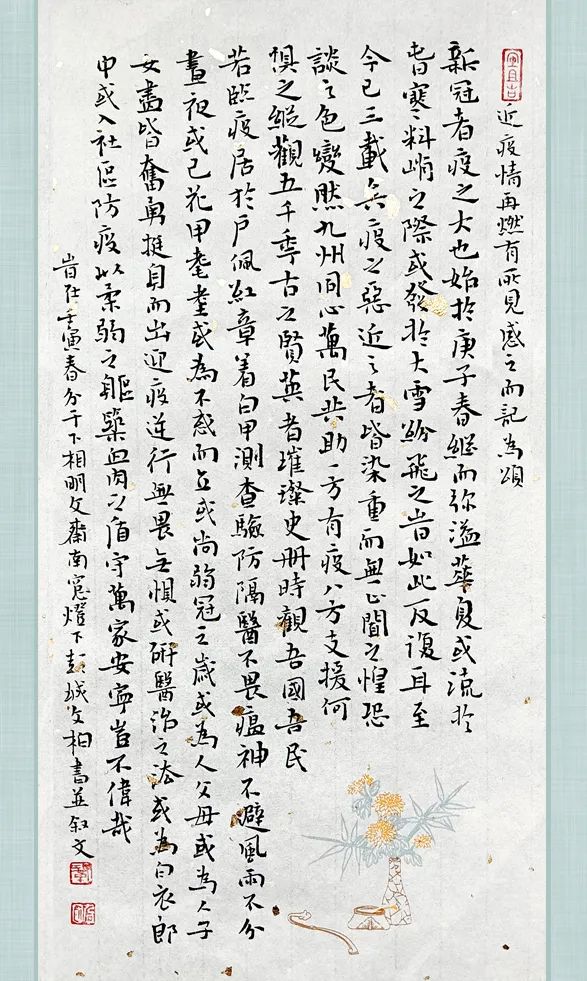 宜且吉
近疫情再燃有所見感之而記為頌
新冠者疫之大也始於庚子春繼而弥溢華夏或流於
旹寒料峭之際或發於大雪紛飛之旹如此反復耳至
今已三載矣疫之惡近之者皆染重而無止聞之惶恐
談之色變然九州同心萬民共助一方有疫八方支援何
惧之縱觀五千年古之賢英者璀璨史册時觀吾國吾民
若臨疫居於戶佩紅章着白甲測查驗防隔醫不畏瘟神不避風雨不分
晝夜或已花甲耄耋或為不惑而立或尚弱冠之歲或為人父母或為人子
女盡皆奮勇挺身而出迎疫逆行無畏無惧或研醫治之法或為白衣郎
中或入社區防疫以柔弱之軀築血肉之盾守萬家安寧豈不偉哉
旹在壬寅春分于下相明文齋南窓燈下彭城文相書並敘文